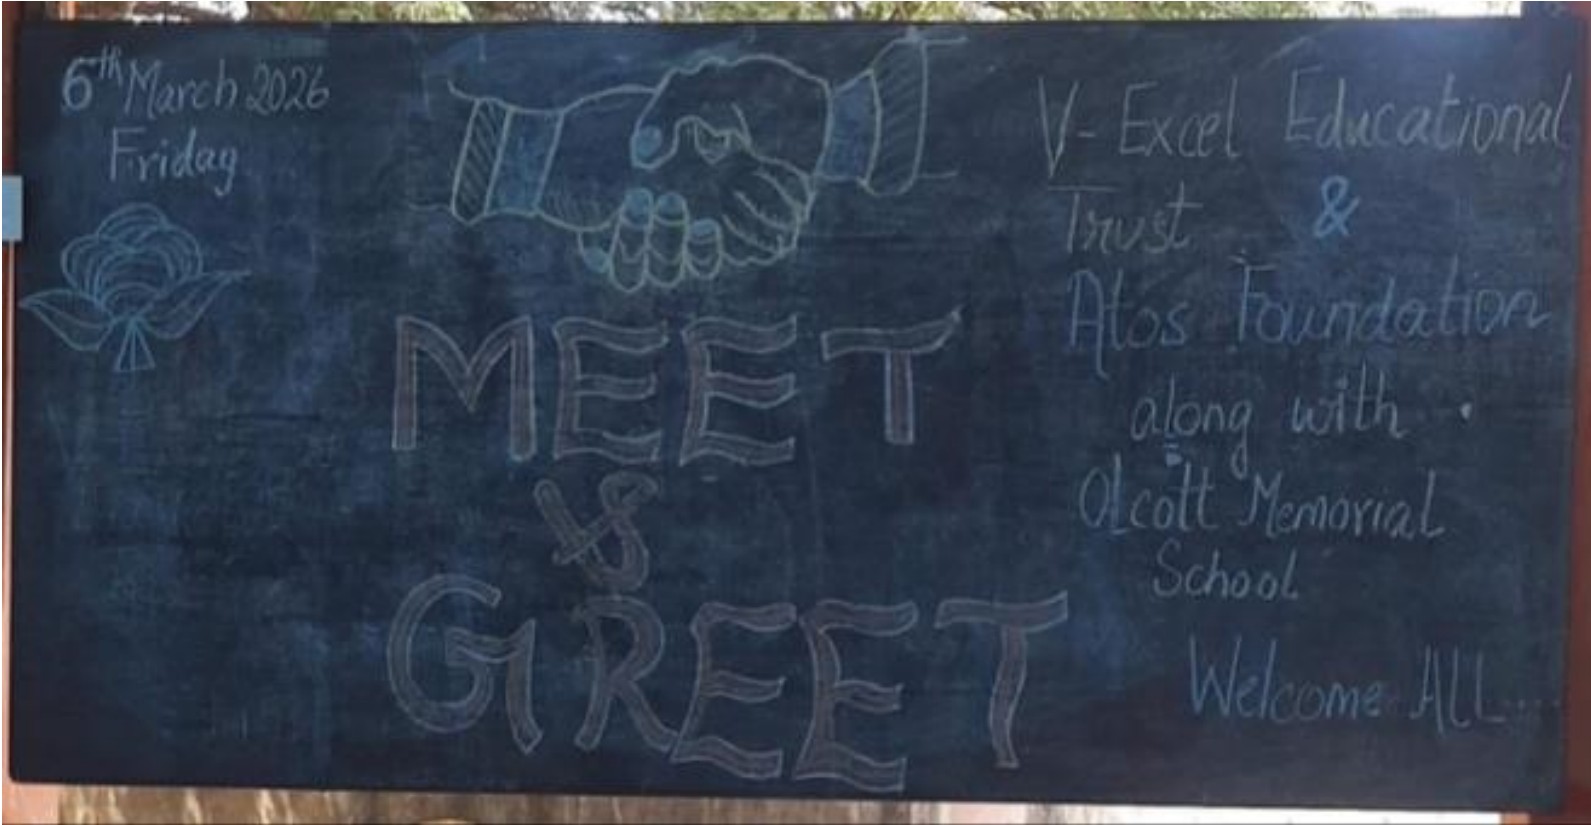 6th March 2026
Friday
MEET
&
GREET
V-Excel Educational
Trust &
Atos Foundation
along with
Olcott Memorial
School
Welcome ALL....